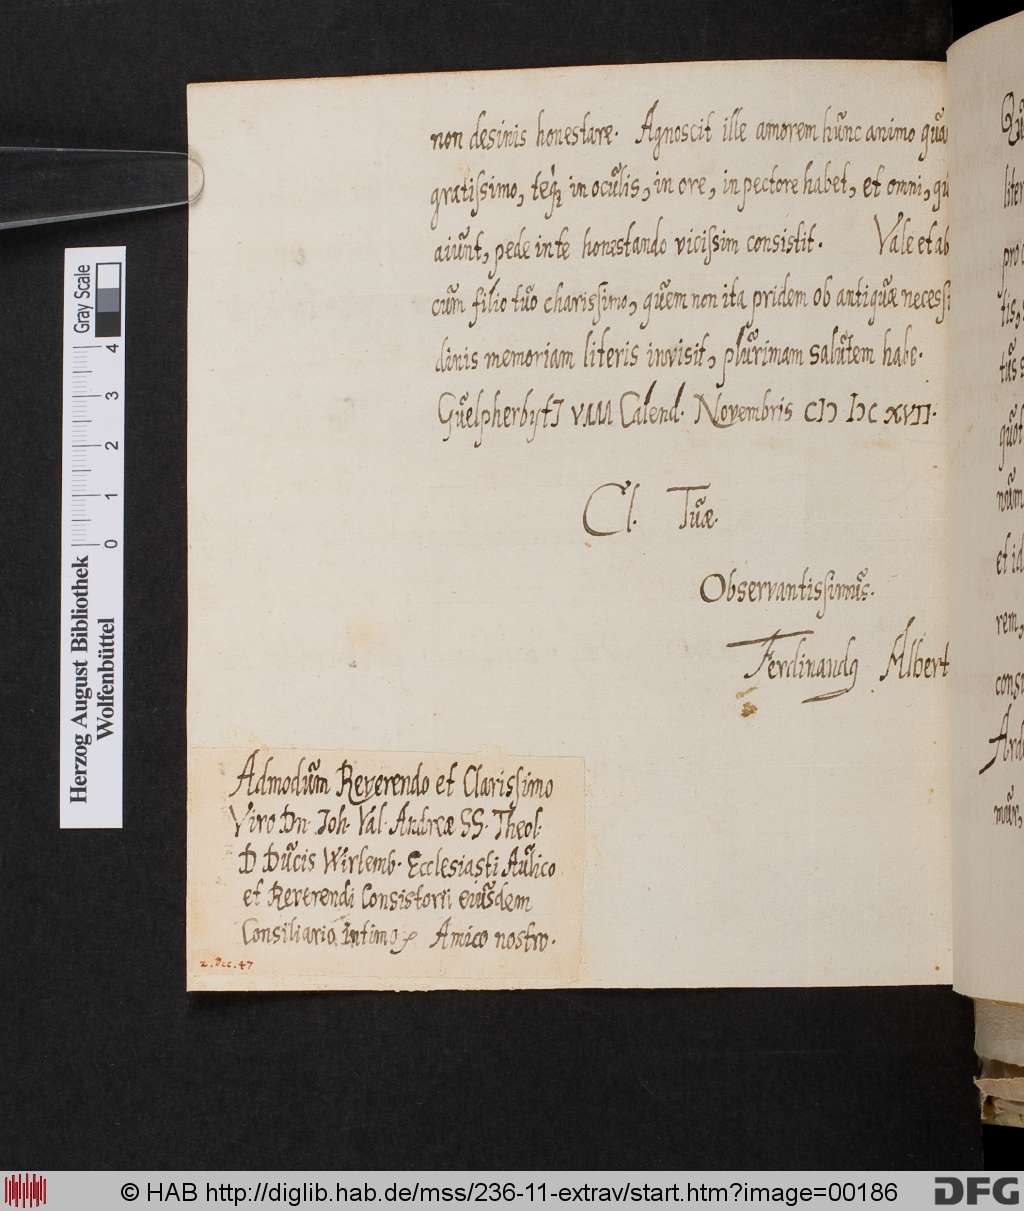 non desinis honestare. Agnoscit ille amorem hunc animo quam
gratissimo, teq; in oculis, in ore, in pectore habet, et omni, qu
aiunt, pede in te honestando vicissim consistit. Vale et ab
cum filio tuo charissimo, quem non ita pridem ob antiquæ necessi
dinis memoriam literis invisit, plurimam salutem habe.
Guelpherbyti VIIII Calend. Novembris CIↃ IↃC XVII.
Cl. Tuæ.
Observantissimus.
Ferdinandus Albert
Admodum Reverendo et Clarissimo
Viro Dn. Joh. Val. Andreæ SS. Theol.
D Ducis Wirtemb. Ecclesiasti Aulico
et Reverendi Consistorii eiusdem
Consiliario Intimo, Amico nostro.
2. Dec. 47
Gray Scale
0 1 2 3 4
Herzog August Bibliothek
Wolfenbüttel
liter
pro
tis,
tus
quot
num
et id
rem,
cons
Ard
mur,
© HAB http://diglib.hab.de/mss/236-11-extrav/start.htm?image=00186
DFG